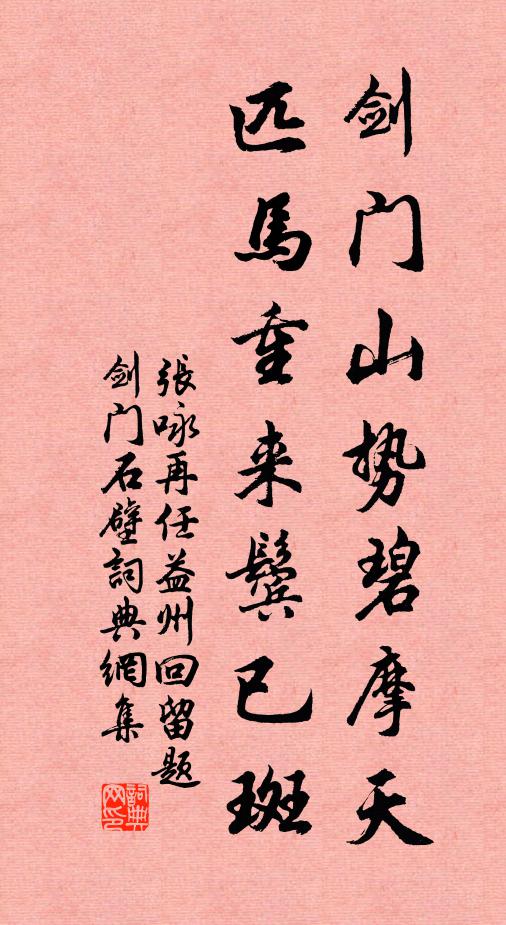 剑门山势碧摩天
匹馬重来鬓已斑
張咏再任益州回留题
剑门石壁詞典網集
詞典网印